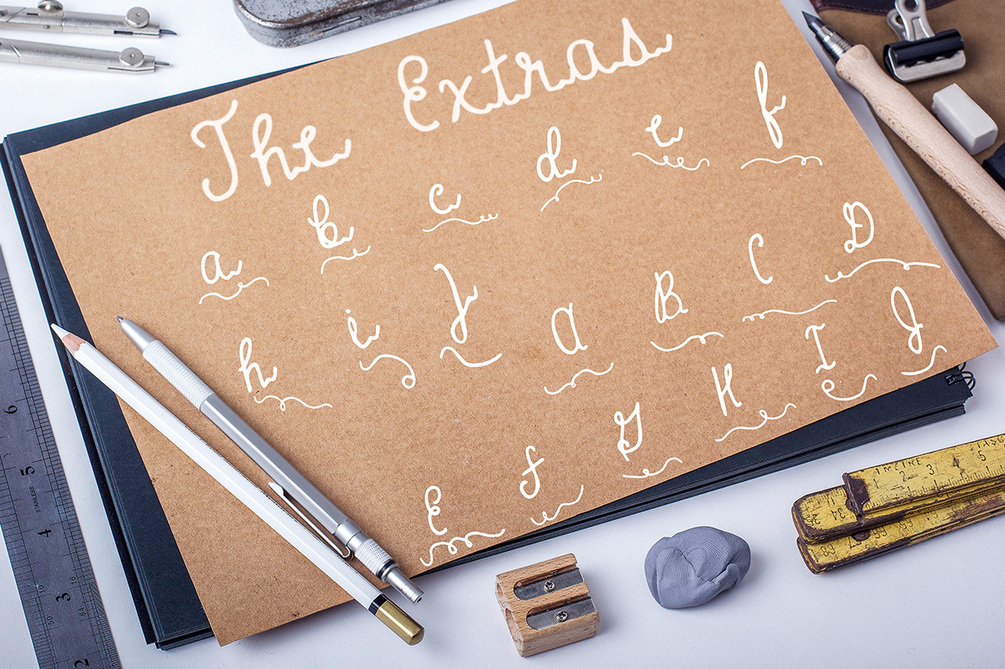 The Extras
a b c d e f
h i j A B C D
E F G H I J
6
5
4
3